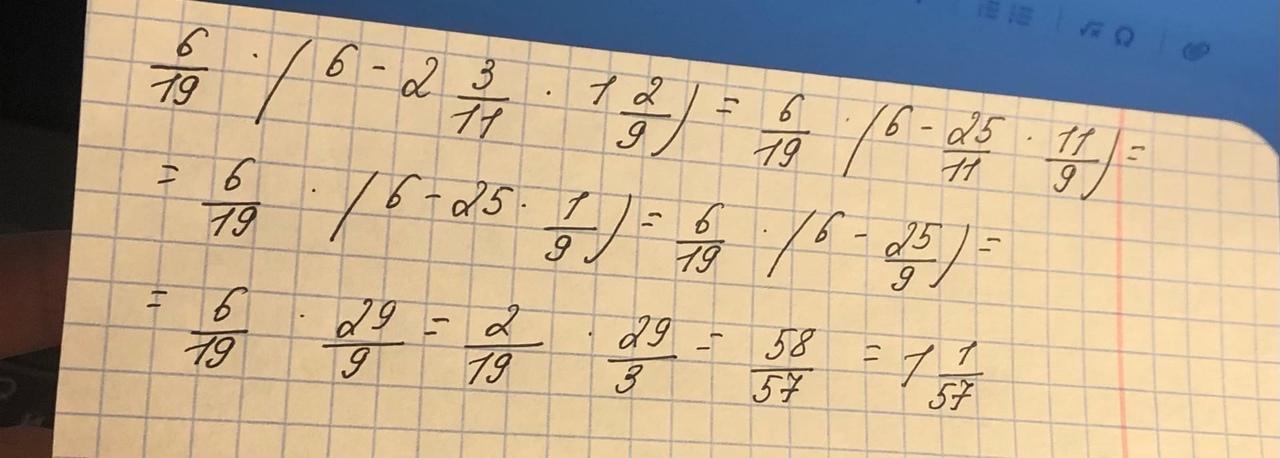 6/19 · (6 - 2 3/11 · 1 2/9) = 6/19 · (6 - 25/11 · 11/9) =
= 6/19 · (6 - 25 · 1/9) = 6/19 · (6 - 25/9) =
= 6/19 · 29/9 = 2/19 · 29/3 = 58/57 = 1 1/57